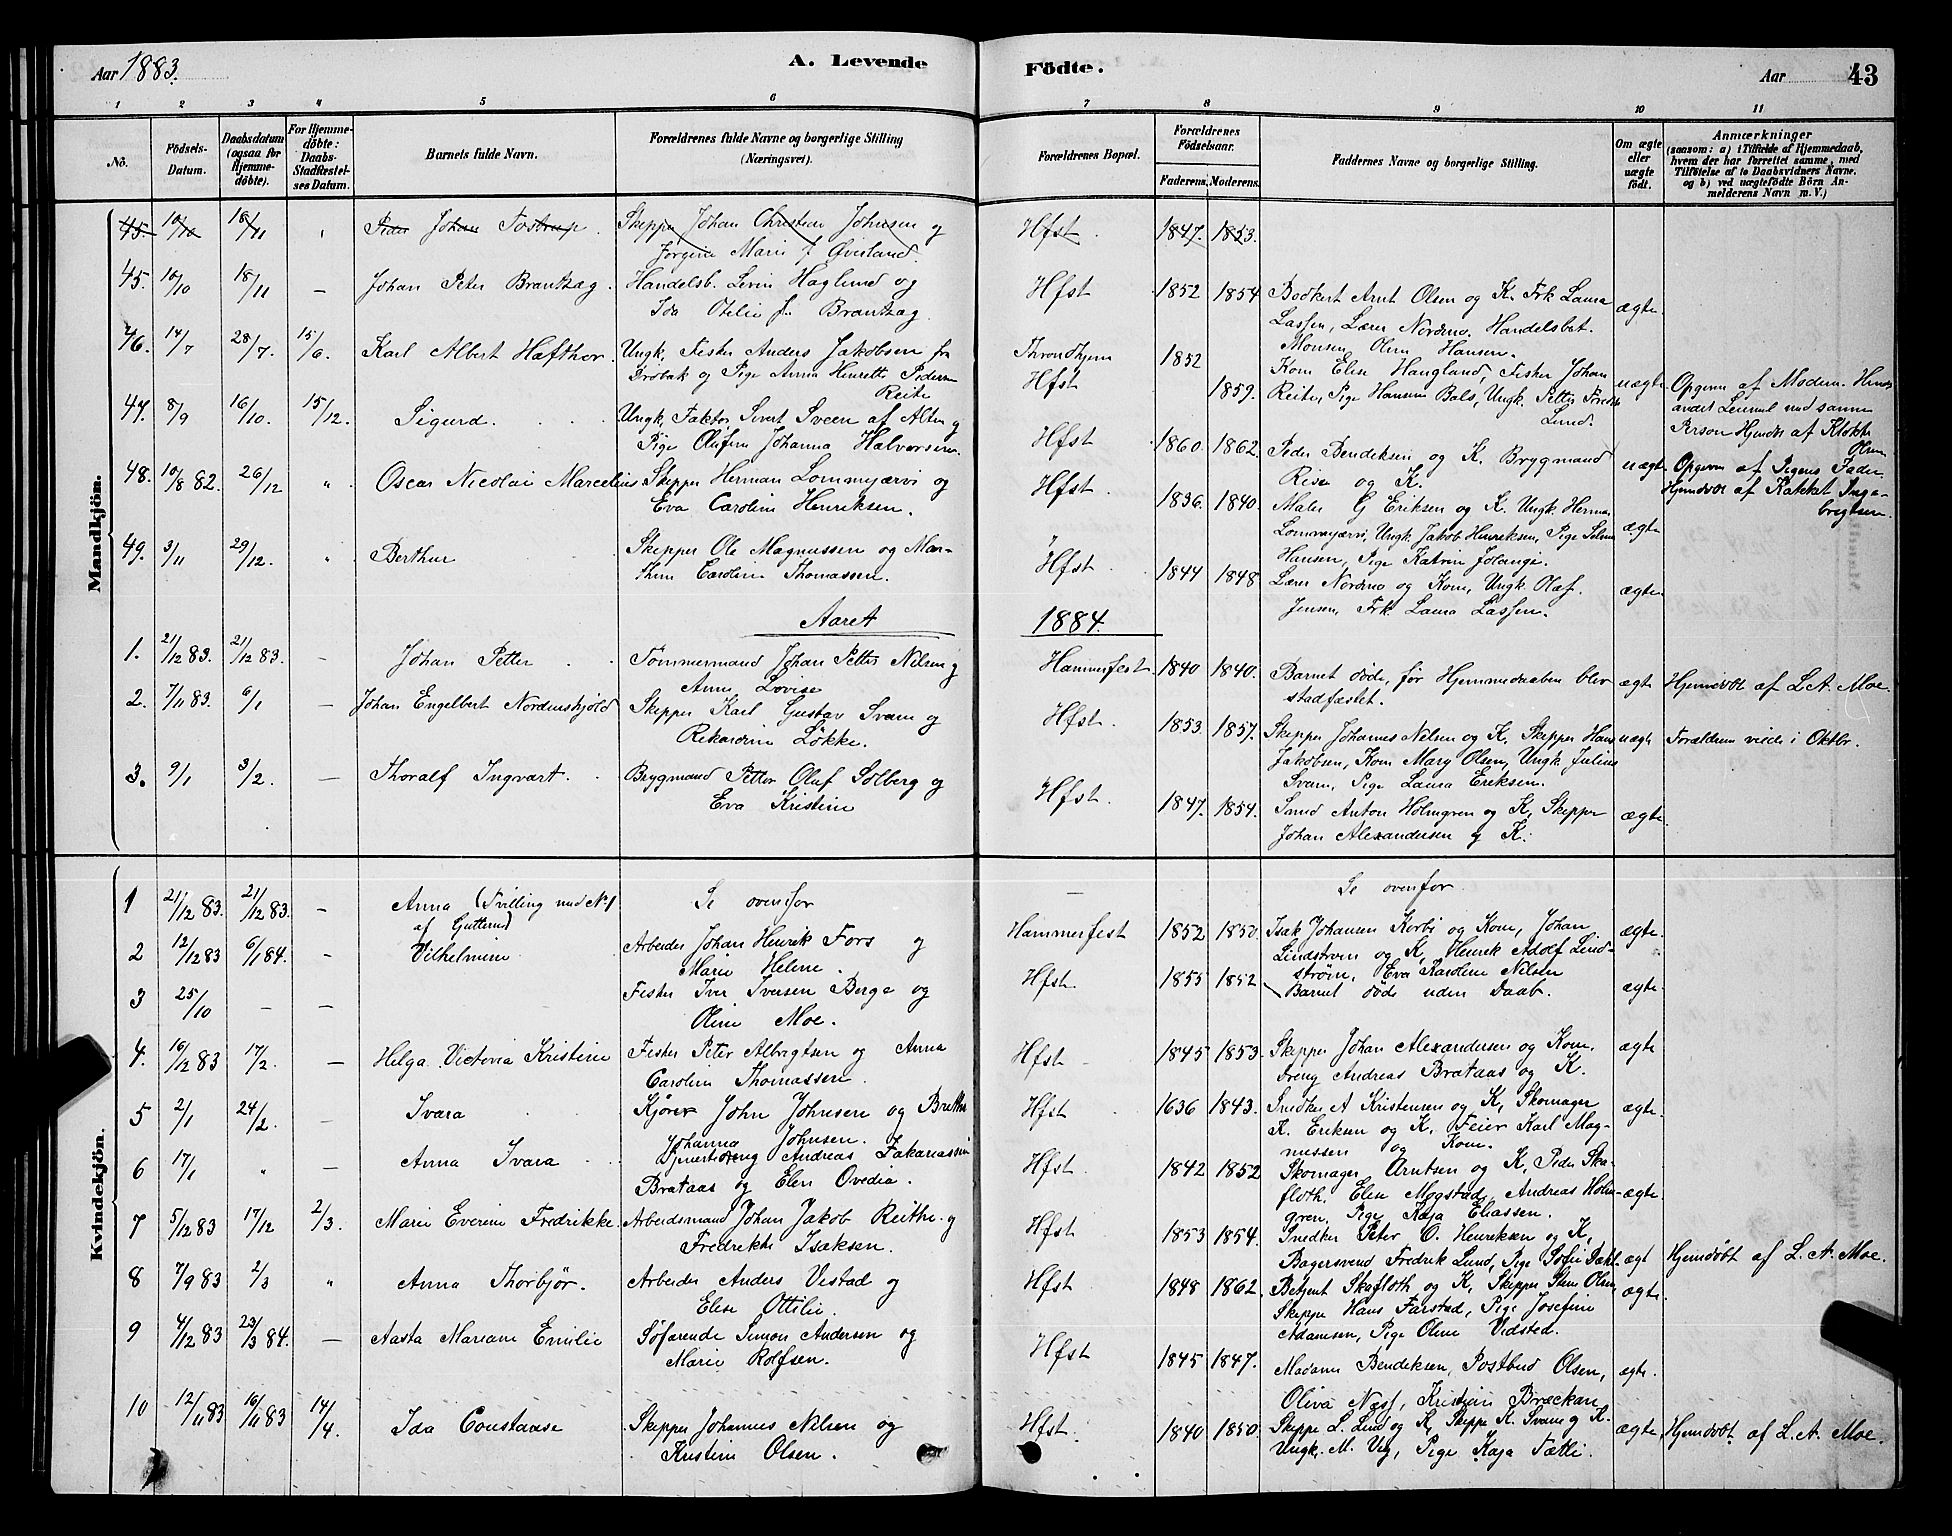 Aar 1883.
A. Levende
Födte.
Aar
43
1 2 3 4 5 6 7 8 9 10 11
No.
Födsels-Datum.
Daabsdatum (ogsaa for Hjemme-döbte).
For Hjemme-döbte: Daabs-Stadfæstel-ses Datum.
Barnets fulde Navn.
Forældrenes fulde Navne og borgerlige Stilling
(Næringsvei).
Forældrenes Bopæl.
Forældrenes Födselsaar.
Faderens. Moderens.
Faddernes Navne og borgerlige Stilling.
Om ægte eller uægte födt.
Anmærkninger
(saasom: a) i Tilfælde af Hjemmedaab,
hvem der har forrettet samme, med
Tilföielse af to Daabsvidners Navne,
og b) ved uægtefödte Börn An-
melderens Navn m. V.)
Mandkjön.
45. 10/10 18/11 Peder Johan Tostrup. Skipper Johan Christian Johnsen og Hfst. 1847. 1853.
Jørgine Marie f. Øverland.
45. 10/10 18/11 – Johan Peter Brantzæg. Handelsb. Levin Haglund og Hfst 1852 1854 Bødkert Arnt Olsen og K. Frk Laura ægte
Ida Otelie f. Brantzæg. Lassen, Lærer Nordmo, Handelsbet.
Monsen, Olem Hansen.
46. 14/7 28/7. 15/6. Karl Albert Hafthor. Ungk. Fisker Anders Jakobsen fra Throndhjem 1852 Kone Elen Haugland, Fisker Johan
Drøbak og Pige Anna Henrette Pedersen Hfst 1859. Reite, Pige Hansine Bals, Ungk. Petter uægte Opgiven af Moderen.
Reite Lund. andet Leiermaal med samme
47. 8/9 16/10. 15/12. Sigurd. Ungk, Faktor Sivert Sveen af Alten og Person Hjemdøbt af Klokker
Pige Olufine Johanna Halvorsen. Hfst 1860. 1862. Peder Bendeksen og K. Brygmand uægte Olsen
Rise og K. Opgiven af Pigens Fader
48. 10/8 82. 26/12 " Oscar Nicolai Marcelius Skipper Herman Lommejærvi og Hfst. 1836. 1840. Maler G Eriksen og K. Ungk. Herman ægte Hjemdøbt af Katekt Inge-
Eva Caroline Henriksen. Lommejærvi, Ungk Jakob Henriksen, Pige brigtsen.
Hansen, Pige Katrine Jolange.
49. 3/11 29/12. " Berthur Skipper Ole Magnussen og Mar- Hfst. 1844 1848 Lærer Nordmo og Kone, Ungk Olaf. ægte
thine Caroline Thomassen. Jensen, Frk. Laura Lassen.
Aaret 1884.
1. 21/12 83. 21/12 83. – Johan Petter Tømmermand Johan Petter Nilsen og Hammerfest. 1840 1840. Barnet døde, før Hjemmedaaben blev ægte Hjemdøbt af L. A. Moe.
Anne Lovise stadfæstet.
2. 7/11 83. 6/1 – Johan Engelbert Nordenskjøld Skipper Karl Gustav Svane og Hfst. 1853. 1857. Skipper Johannes Nilsen og K. Skipper Hans uægte Forældrene viede i Oktbr.
Rikardine Løkke. Jakobsen, Kone Mary Olsen, Ungk Julius
Svane, Pige Laura Eriksen.
3. 9/1 3/2. – Thoralf Ingvart. Brygmand Petter Oluf Solberg og Hfst. 1847. 1854. Smed Anton Holmgren og K, Skipper ægte.
Eva Kristine Johan Alexandersen og K.
Kvindekjön.
1 21/12 83. 21/12 83. – Anna (Tvilling med No 1 Se ovenfor – Se ovenfor
af Guttene)
2 12/12 83 6/1 84. – Vilhelmine Arbeider Johan Henrik Fors og Hammerfest. 1852 1850. Isak Johansen Korbi og Kone, Johan ægte.
Marie Helene. Lindstrøm og K, Henrik Adolf Lind-
strøm, Eva Karoline Nilsen
3 25/10 – – Fisker Iver Iversen Berge og Hfst. 1855 1852 Barnet døde uden Daab. ægte.
Oline Moe.
4. 16/12 83 17/2. – Helga Victoria Kristine Fisker Peter Albrigtsen og Anna Hfst 1845 1853. Skipper Johan Alexandersen og Kone, ægte
Caroline Thomassen. Dreng Andreas Brataas og K.
5 2/1 24/2. – Ivara Kjører John Johnsen og Hfst 1636 1843. Snedker A Kristensen og K, Skomager ægte.
Johanna Johnsen. K. Eriksen og K, Feier Karl Mag-
nussen og Kone.
6 17/1 " – Anna Ivara Andreas Zakariassen Hfst. 1842 1852 Skomager Arntsen og K, Peder Ska-
Brataas og Elen Ovedia. floth. Elen Mogstad, Andreas Holm- ægte.
gren. Pige Kaja Eliassen.
7 5/12 83 17/12 2/3. Marie Everine Fredrikke. Arbeidsmand Johan Jakob Reithe og Hfst 1853 1854. Snedker Peter O. Henriksen og K,
Fredrikke Isaksen. Bagersvend Fredrik Lund, Pige Sofie ægt Hjemdøbt af L. A. Moe.
8 7/9 83 2/3 " Anna Thorbjør. Arbeider Anders Vestad og Hfst 1848 1862. Betjent Skafloth og K, Skipper Olsen, ægte
Elise Ottilie. Skipper Hans Farstad, Pige Josefine
Adamsen, Pige Oline Vidsted.
9 4/12 83 23/3 84. – Aasta Mariane Emilie Søfarende Simon Andersen og Hfst 1845 1847. Madame Bendeksen, Postbud Olsen, ægte.
Marie Rolfsen. Oliva Næss, Kristine Brækkan
10 12/11 83 16/11 83 14/4. Ida Constanse Skipper Johannes Nilsen og Hfst. 1840 1850. Skipper L. Lind og K, Skipper K. Svane og K. ægte. Hjemdøbt af L. A. Moe.
Kristine Olsen. Ungk. M. Vig, Pige Kaja Fætli